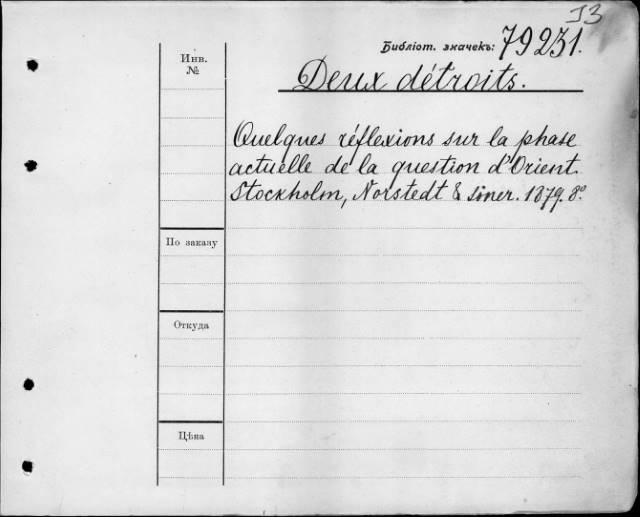 J3
Библіот. значекъ: 79231.
Инв.
№
Deux détroits.
Quelques réflexions sur la phase
actuelle de la question d'Orient.
Stockholm, Norstedt & söner. 1879. 8º
По заказу
Откуда
Цѣна